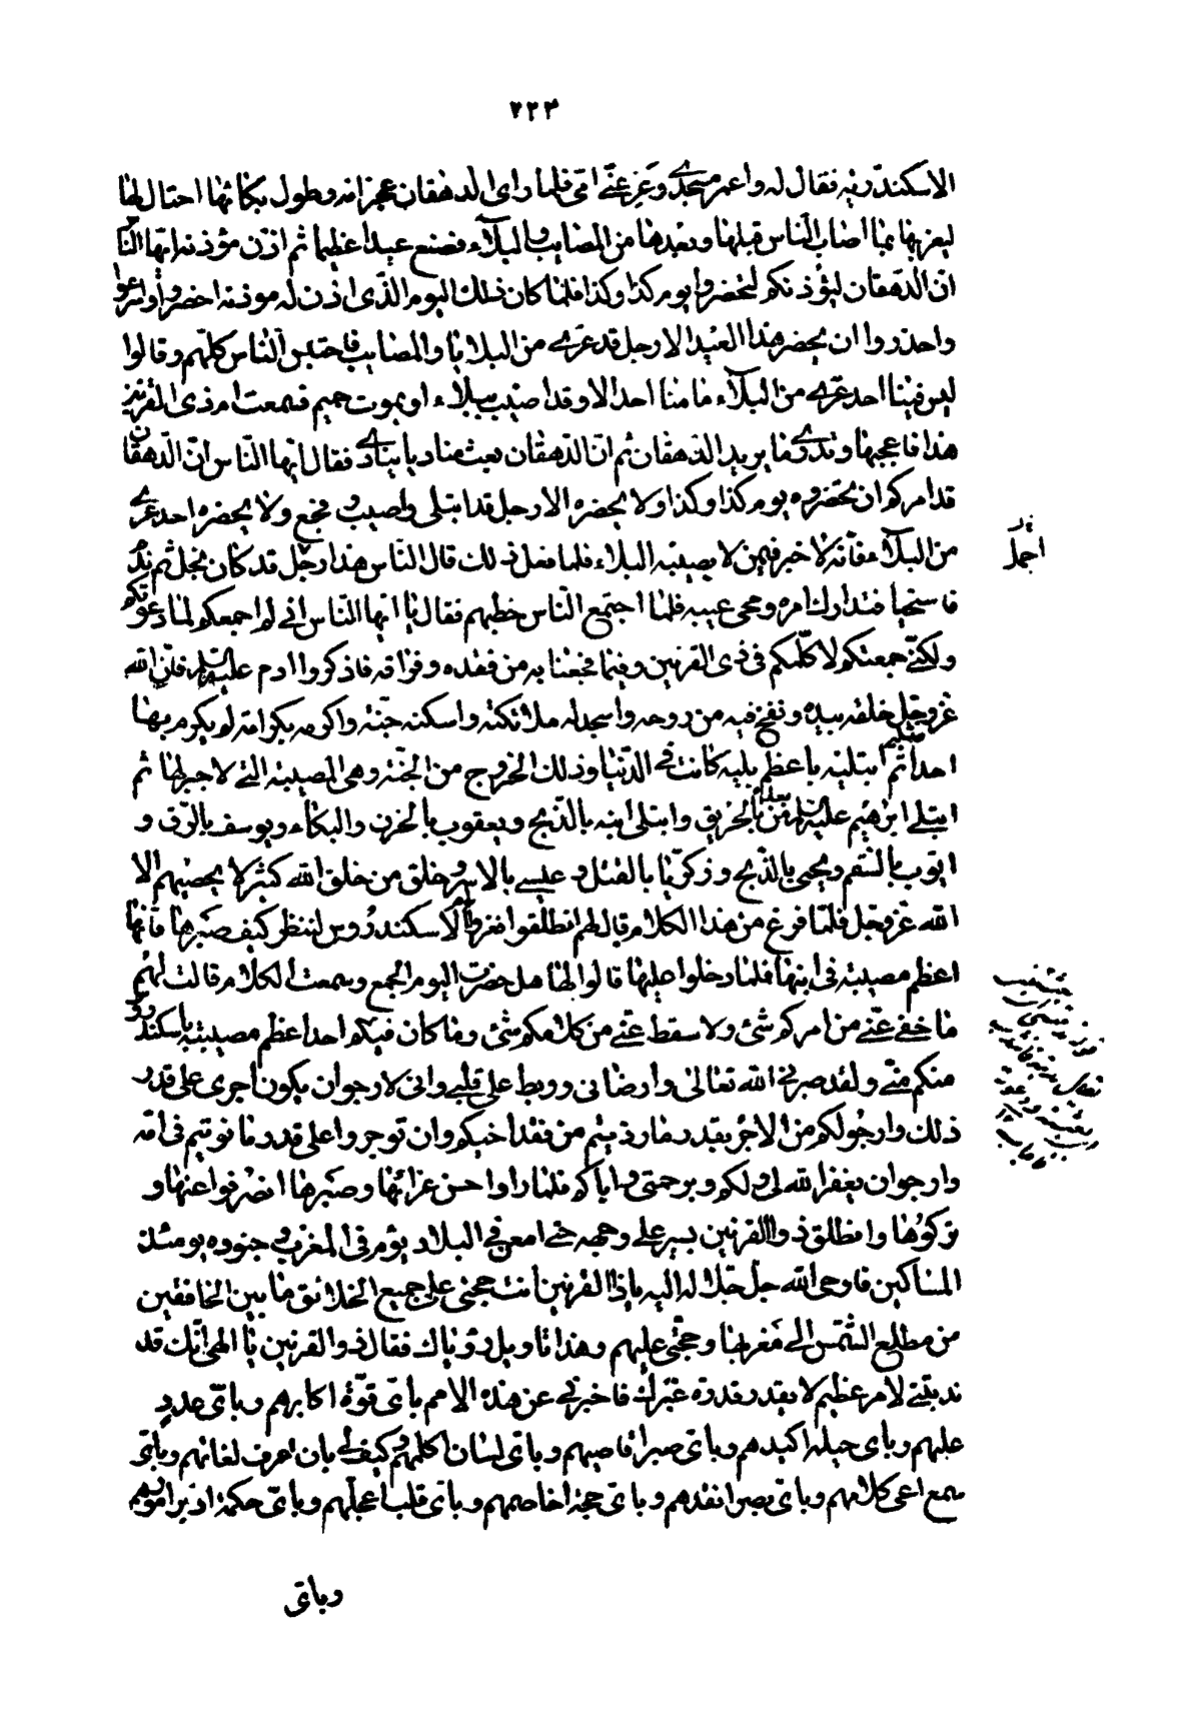 ٢٢٣
الاسكندرية فقال له واعمر مسجدي وعز عني امي فلما راى الدهقان عجزامه وطول بكائها احتال لها
ليعزيها بما اصاب الناس قبلها وبعدها من المصايب والبلاء فصنع عيدا عظيما ثم اذن مؤذنه ايها الناس
ان الدهقان ليؤذنكم لتحضروا يوم كذا وكذا فلما كان ذلك اليوم الذي اذن له موذنه احضروا واسرعوا
واحذروا ان يحضر هذا العيد الا رجل قد عرى من البلايا والمصايب فاحتبس الناس كلهم وقالوا
ليس فينا احد عرى من البلاء ما منا احد الا وقد اصيب ببلاء او بموت حميم فسمعت ام ذى القرنين
هذا فاعجبها وندرى ما يريد الدهقان ثم ان الدهقان بعث مناديا ينادى فقال ايها الناس ان الدهقان
قد امركم ان تحضروه يوم كذا وكذا ولا يحضره الا رجل قد ابتلى واصيب وفجع ولا يحضره احد عرى
من البلاء فانه لا خير فيمن لا يصيبه البلاء فلما فعل ذلك قال الناس هذا رجل قد كان بخل ثم ندم
اجمل
فاستحيا فتدارك امره ومحى عيبه فلما اجتمع الناس خطبهم فقال يا ايها الناس اني لم اجمعكم لما دعوتكم
ولكنى جمعتكم لاكلمكم فى ذى القرنين وفيما فجعنا به من فقده وفراقه فاذكروا ادم عليه السلم فان الله
عز وجل خلقه بيده ونفخ فيه من روحه واسجد له ملائكته واسكنه جنته واكرمه بكرامة لم يكرم بها
احدا ثم ابتليه باعظم بليه كانت فى الدنيا وذلك الخروج من الجنة وهى المصيبة التى لا جبر لها ثم
ابتلى ابرهيم عليه السلم من بعده بالحريق وابتلى ابنه بالذبح ويعقوب بالحزن والبكاء ويوسف بالرق و
ايوب بالسقم ويحيى بالذبح وزكريا بالقتل وعيسى بالاسر وخلق من خلق الله كثير لا يحصيهم الا
الله عز وجل فلما فرغ من هذا الكلام قال لهم انطلقوا فعزوا ام الاسكندروس لننظر كيف صبرها فانها
اعظم مصيبة فى ابنها فلما دخلوا عليها قالوا لها هل حضرت اليوم الجمع وسمعت الكلام قالت لهم
ما خفى عنى من امركم شئ ولا سقط عنى من كلامكم شئ وما كان فيكم احد اعظم مصيبة باسكندروس
منكم منى ولقد صبرنى الله تعالى وارضانى وربط على قلبى وانى لارجو ان يكون اجرى على قدر
ذلك وارجو لكم من الاجر بقدر ما رزيتم من فقد اخيكم وان توجروا على قدر ما نويتم فى امه
وارجو ان يغفر الله لى ولكم ويرحمنى واياكم فلما راوا حسن عزائها وصبرها انصرفوا عنها و
تركوها وانطلق ذو القرنين يسير على وجهه حتى امعن فى البلاد يؤم فى المغرب وجنوده يومئذ
المساكين فاوحى الله جل جلاله اليه يا ذا القرنين انت حجتى على جميع الخلائق ما بين الخافقين
من مطلع الشمس الى مغربها وحجتى عليهم وهذا تاويل رؤياك فقال ذو القرنين يا الهى انك قد
ندبتنى لامر عظيم لا يقدر قدره غيرك فاخبرنى عن هذه الامم باى قوة اكابرهم وباى عدد
عليهم وباى حيلة اكيدهم وباى صبر اقاصيهم وباى لسان اكلمهم وكيف لى بان اعرف لغاتهم وباى
سمع اعى كلامهم وباى بصر انقدهم وباى حجة اخاصمهم وباى قلب اعجلهم وباى حكمة ادبر امورهم
وباى